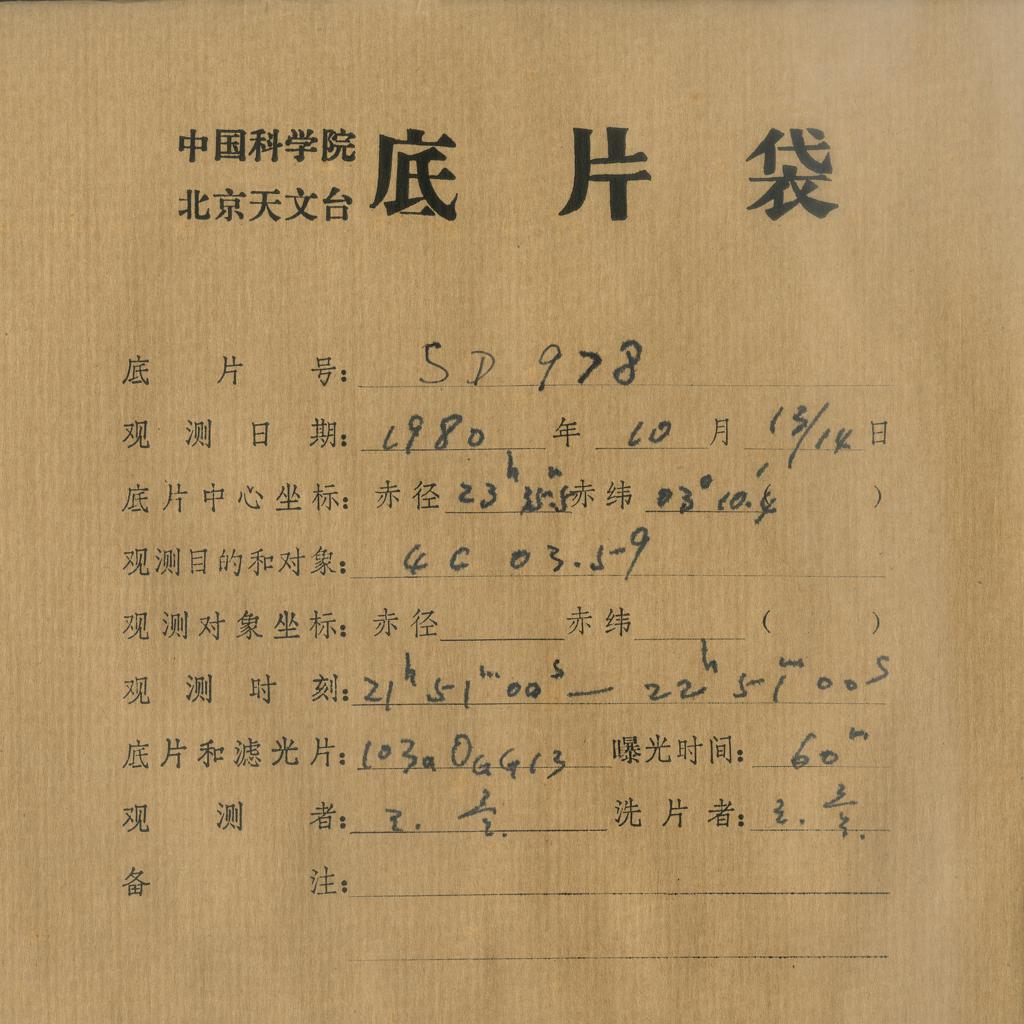 中国科学院
北京天文台
底片袋
底片号: SD 978
观测日期: 1980年10月13/14日
底片中心坐标: 赤径 23h 35m.5 赤纬 03° 10.'4 )
观测目的和对象: 4C 03.59
观测对象坐标: 赤径 赤纬 ( )
观测时刻: 21h 51m 00s — 22h 51m 00s
底片和滤光片: 103aO GG13 曝光时间: 60m
观测者: 洗片者:
备注: